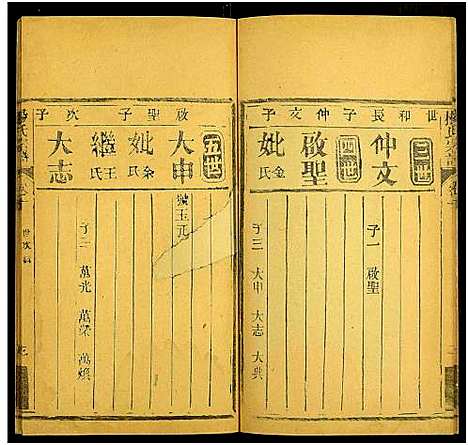 世和長子仲文子
三世
仲文
子一 啟聖
四世
啟聖
妣金氏
子三 大申 大志 大典
啟聖子
次子
五世
大申
號玉元
妣余氏
繼王氏
子三 萬光 萬榮 萬煥
大志
楊氏宗譜
世次